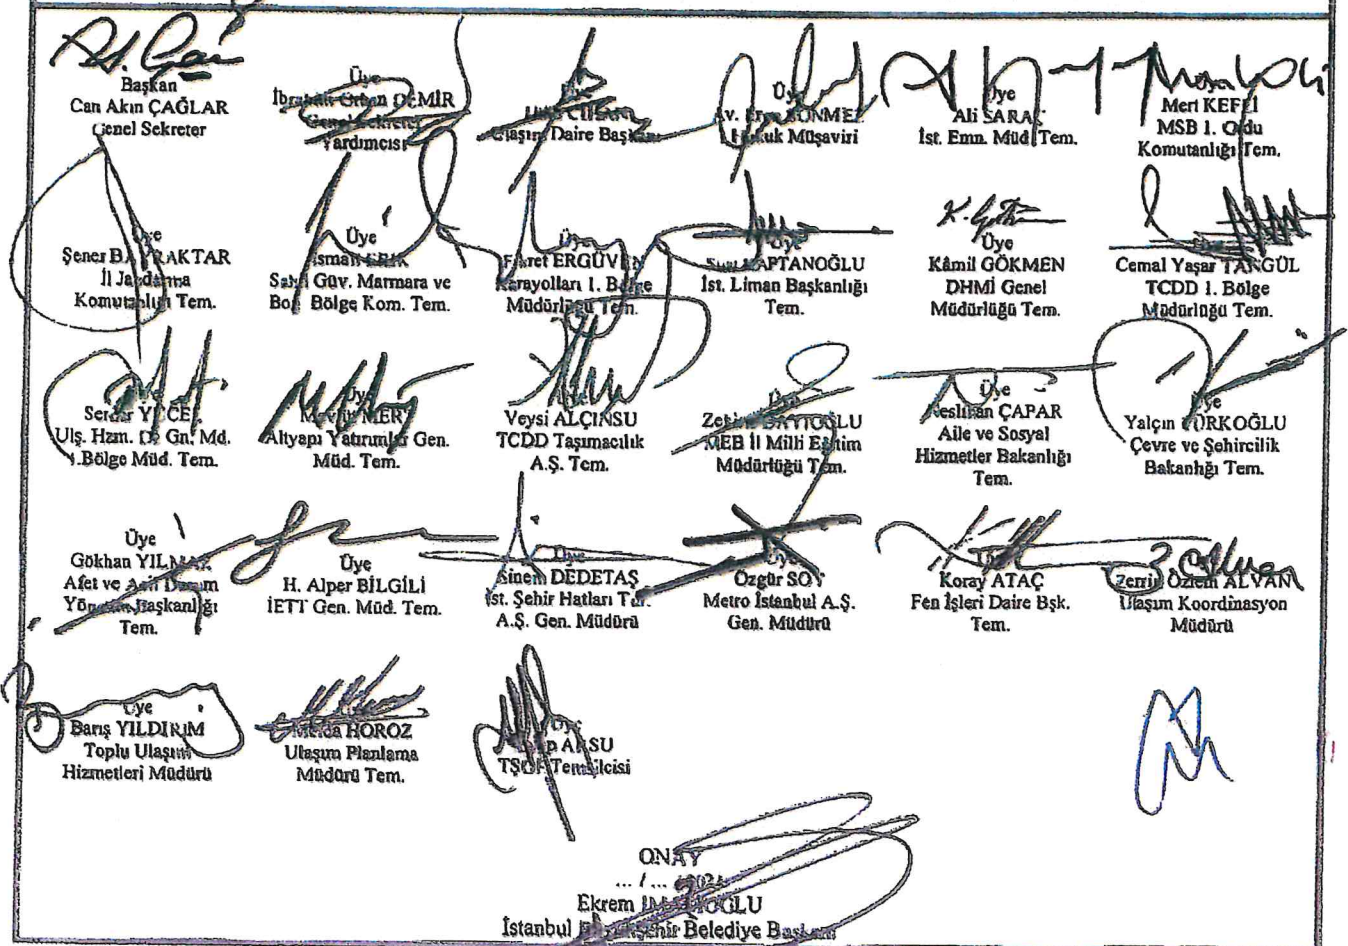 Başkan
Can Akın ÇAĞLAR
Genel Sekreter
Üye
İbrahim Orhan DEMİR
Genel Sekreter
Yardımcısı
Üye
Ulaşım Daire Başkanı
Üye
Av.
Hukuk Müşaviri
Üye
Ali SARAÇ
İst. Emn. Müd. Tem.
Mert KEFELİ
MSB 1. Ordu
Komutanlığı Tem.
Üye
Şener BAYRAKTAR
İl Jandarma
Komutanlığı Tem.
Üye
İsmail
Sahil Güv. Marmara ve
Boğ. Bölge Kom. Tem.
Üye
ERGÜVEN
Karayolları 1. Bölge
Müdürlüğü Tem.
Üye
KAPTANOĞLU
İst. Liman Başkanlığı
Tem.
Üye
Kâmil GÖKMEN
DHMİ Genel
Müdürlüğü Tem.
Cemal Yaşar TANGÜL
TCDD 1. Bölge
Müdürlüğü Tem.
Serdar YÜCEL
Ulş. Hzm. Dz Gn. Md.
1.Bölge Müd. Tem.
Üye
Mevlüt MERT
Altyapı Yatırımlar Gen.
Müd. Tem.
Üye
Veysi ALÇINSU
TCDD Taşımacılık
A.Ş. Tem.
MEB İl Milli Eğitim
Müdürlüğü Tem.
Üye
Neslihan ÇAPAR
Aile ve Sosyal
Hizmetler Bakanlığı
Tem.
Üye
Yalçın TÜRKOĞLU
Çevre ve Şehircilik
Bakanlığı Tem.
Üye
Gökhan YILMAZ
Afet ve Acil Durum
Yönetim Başkanlığı
Tem.
Üye
H. Alper BİLGİLİ
İETT Gen. Müd. Tem.
Üye
Sinem DEDETAŞ
İst. Şehir Hatları Tur.
A.Ş. Gen. Müdürü
Üye
Özgür SOY
Metro İstanbul A.Ş.
Gen. Müdürü
Koray ATAÇ
Fen İşleri Daire Bşk.
Tem.
Zerrin Özlem ALVAN
Ulaşım Koordinasyon
Müdürü
Üye
Barış YILDIRIM
Toplu Ulaşım
Hizmetleri Müdürü
HOROZ
Ulaşım Planlama
Müdürü Tem.
Üye
AKSU
TŞOF Temsilcisi
ONAY
... / ...
Ekrem İMAMOĞLU
İstanbul Büyükşehir Belediye Başkanı